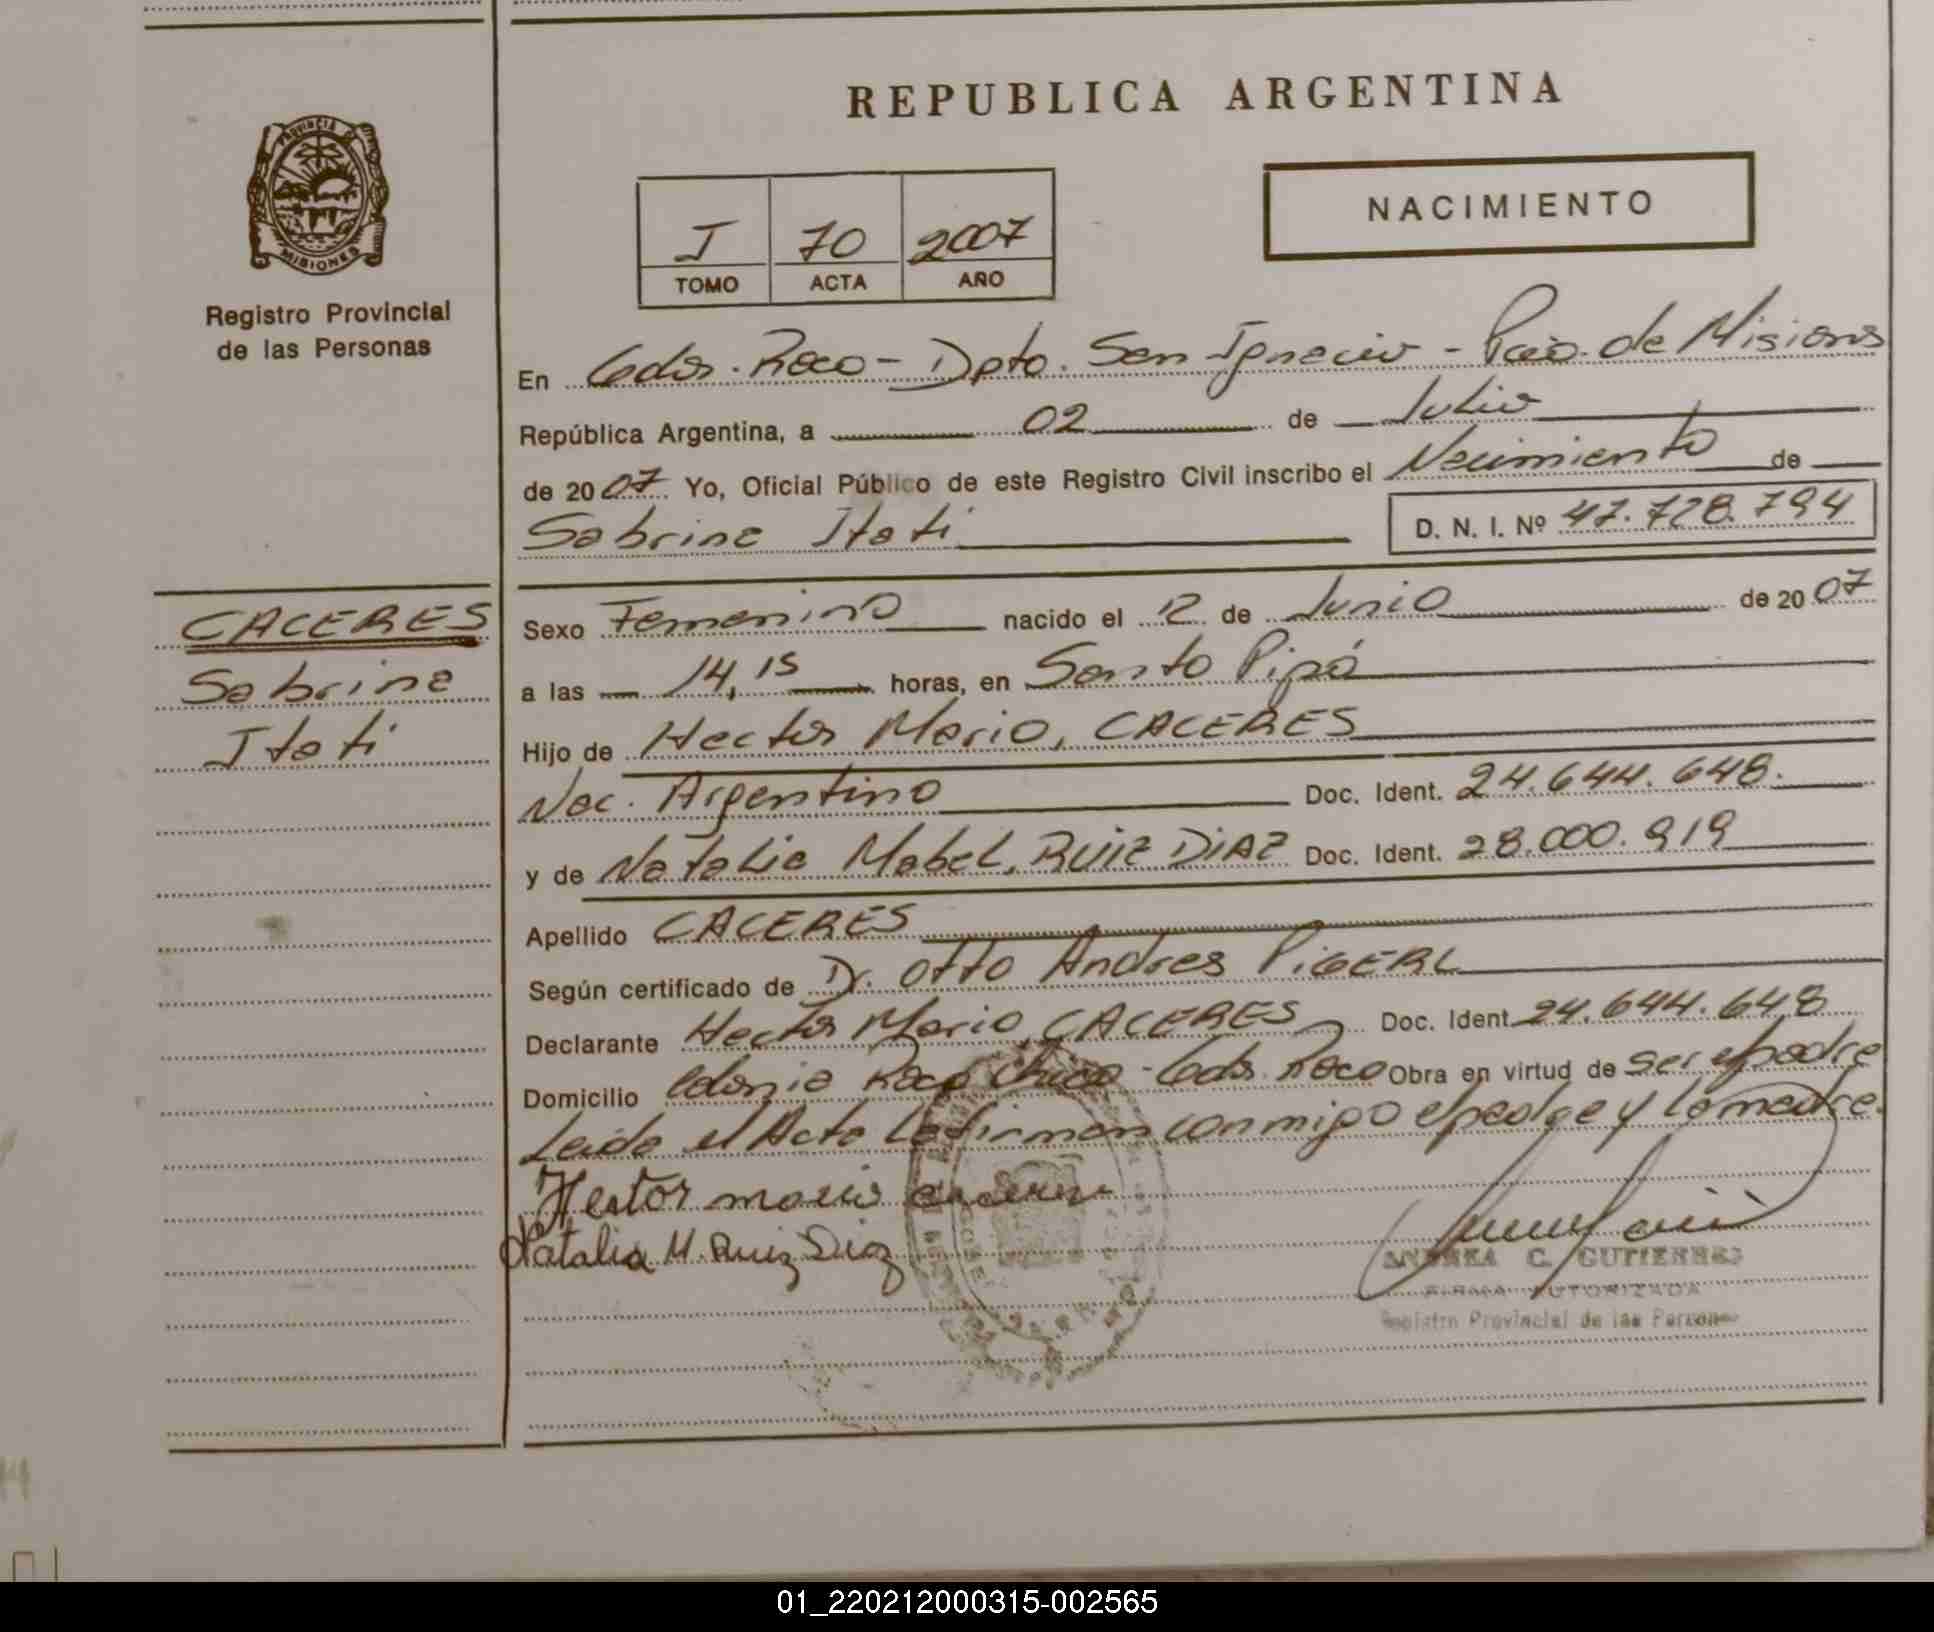 REPUBLICA ARGENTINA
PROVINCIA DE
MISIONES
Registro Provincial
de las Personas
NACIMIENTO
I 70 2007
TOMO ACTA AÑO
En Gdor. Roca - Dpto. San Ignacio - Pcia. de Misiones
República Argentina, a 02 de Julio
de 2007 Yo, Oficial Público de este Registro Civil inscribo el Nacimiento de
Sabrina Itati D. N. I. Nº 47.728.794
CACERES
Sabrina
Itati
Sexo Femenino nacido el 12 de Junio de 2007
a las 14,15 horas, en Santo Pipó
Hijo de Hector Mario, CACERES
Nac. Argentino Doc. Ident. 24.644.648.
y de Natalia Mabel, RUIZ DIAZ Doc. Ident. 28.000.919
Apellido CACERES
Según certificado de Dr. Otto Andres PIGERL
Declarante Hector Mario CACERES Doc. Ident 24.644.648
Domicilio Colonia Roca Chica - Gdor. Roca Obra en virtud de ser el padre
Leida el Acta la firman conmigo el padre y la madre.
Hestor mario caceres
Natalia M. Ruiz Diaz
ANDREA C. GUTIERREZ
FIRMA AUTORIZADA
Registro Provincial de las Personas
01_220212000315-002565